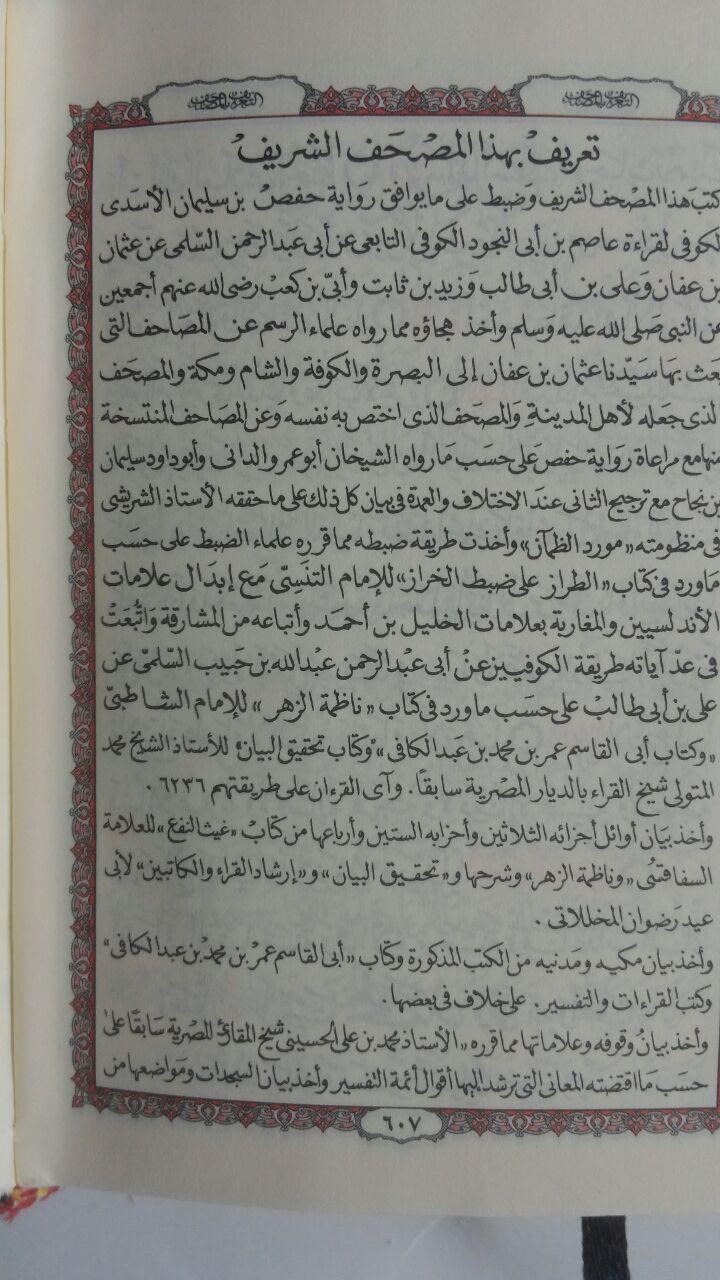 التعريف بالمصحف
التعريف بالمصحف
تعريف بهذا المصحف الشريف
كتب هذا المصحف الشريف وضبط على ما يوافق رواية حفص بن سليمان الأسدى
لكوفى لقراءة عاصم بن أبى النجود الكوفى التابعى عن أبى عبد الرحمن السلمى عن عثمان
بن عفان وعلى بن أبى طالب وزيد بن ثابت وأبىّ بن كعب رضى الله عنهم أجمعين
عن النبى صلى الله عليه وسلم وأخذ هجاؤه مما رواه علماء الرسم عن المصاحف التى
بعث بها سيدنا عثمان بن عفان إلى البصرة والكوفة والشام ومكة والمصحف
لذى جعله لأهل المدينة والمصحف الذى اختص به نفسه وعن المصاحف المنتسخة
منها مع مراعاة رواية حفص على حسب ما رواه الشيخان أبو عمرو الدانى وأبو داود سليمان
بن نجاح مع ترجيح الثانى عند الاختلاف والعمدة فى بيان كل ذلك على ما حققه الأستاذ الشريشى
فى منظومته «مورد الظمآن» وأخذت طريقة ضبطه مما قرره علماء الضبط على حسب
ما ورد فى كتاب «الطراز على ضبط الخراز» للإمام التنَسِىّ مع إبدال علامات
الأندلسيين والمغاربة بعلامات الخليل بن أحمد وأتباعه من المشارقة واتُّبعَتْ
فى عدّ آياته طريقة الكوفيين عن أبى عبد الرحمن عبد الله بن حبيب السلمىّ عن
على بن أبى طالب على حسب ما ورد فى كتاب «ناظمة الزهر» للإمام الشاطبىّ
«وكتاب أبى القاسم عمر بن محمد بن عبد الكافى» «وكتاب تحقيق البيان» للأستاذ الشيخ محمد
المتولى شيخ القراء بالديار المصرية سابقًا. وآى القرءان على طريقتهم ٦٢٣٦.
وأخذ بيان أوائل أجزائه الثلاثين وأحزابه الستين وأرباعها من كتاب «غيث النفع» للعلامة
السفاقسّى «وناظمة الزهر» وشرحها و«تحقيق البيان» و«إرشاد القراء والكاتبين» لأبى
عيد رضوان المخللاتى.
وأخذ بيان مكيه ومدنيه من الكتب المذكورة وكتاب «أبى القاسم عمر بن محمد بن عبد الكافى»
وكتب القراءات والتفسير. على خلاف فى بعضها.
وأخذ بيان وقوفه وعلاماتها مما قرره «الأستاذ محمد بن على الحسينى شيخ المقارئ المصرية سابقًا على
حسب ما اقتضته المعانى التى ترشد إليها أقوال أئمة التفسير وأخذ بيان السجدات ومواضعها من
٦٠٧